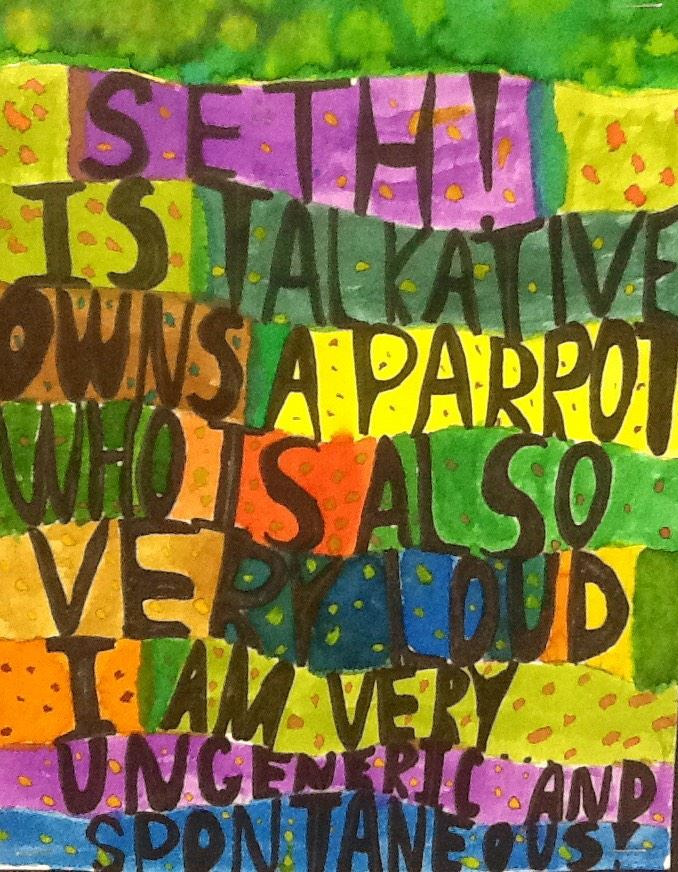 SETH!
IS TALKATIVE
OWNS A PARROT
WHO IS ALSO
VERY LOUD
I AM VERY
UNGENERIC AND
SPONTANEOUS!